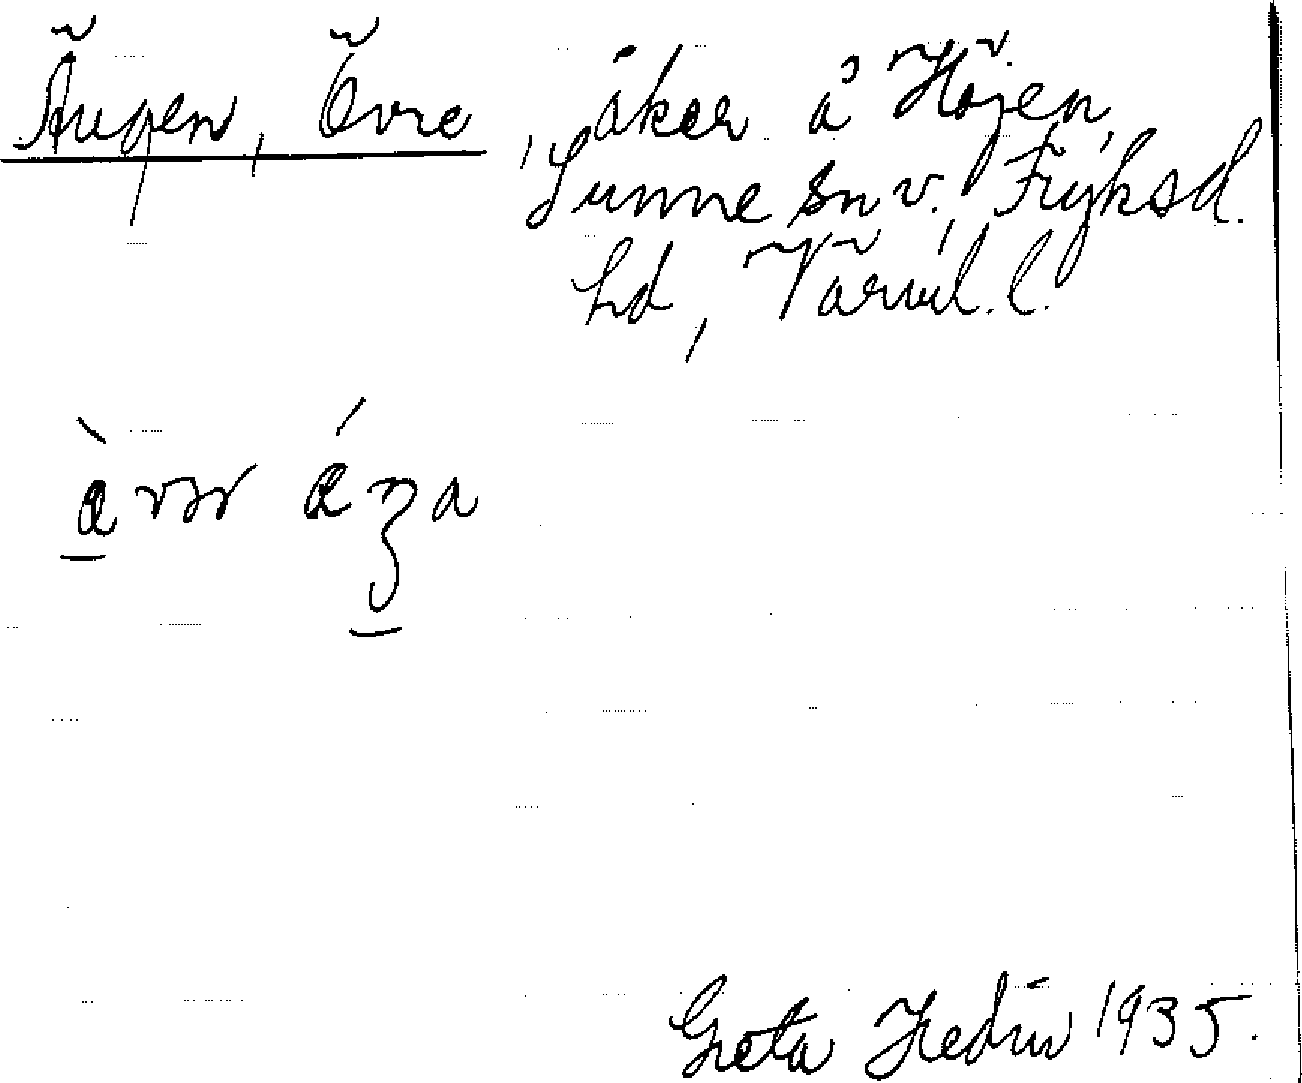 Ängen, Övre, åker å Höjen,
Sunne sn v., Fryksd.
hd, Värml. l.
Greta Hedin 1935.